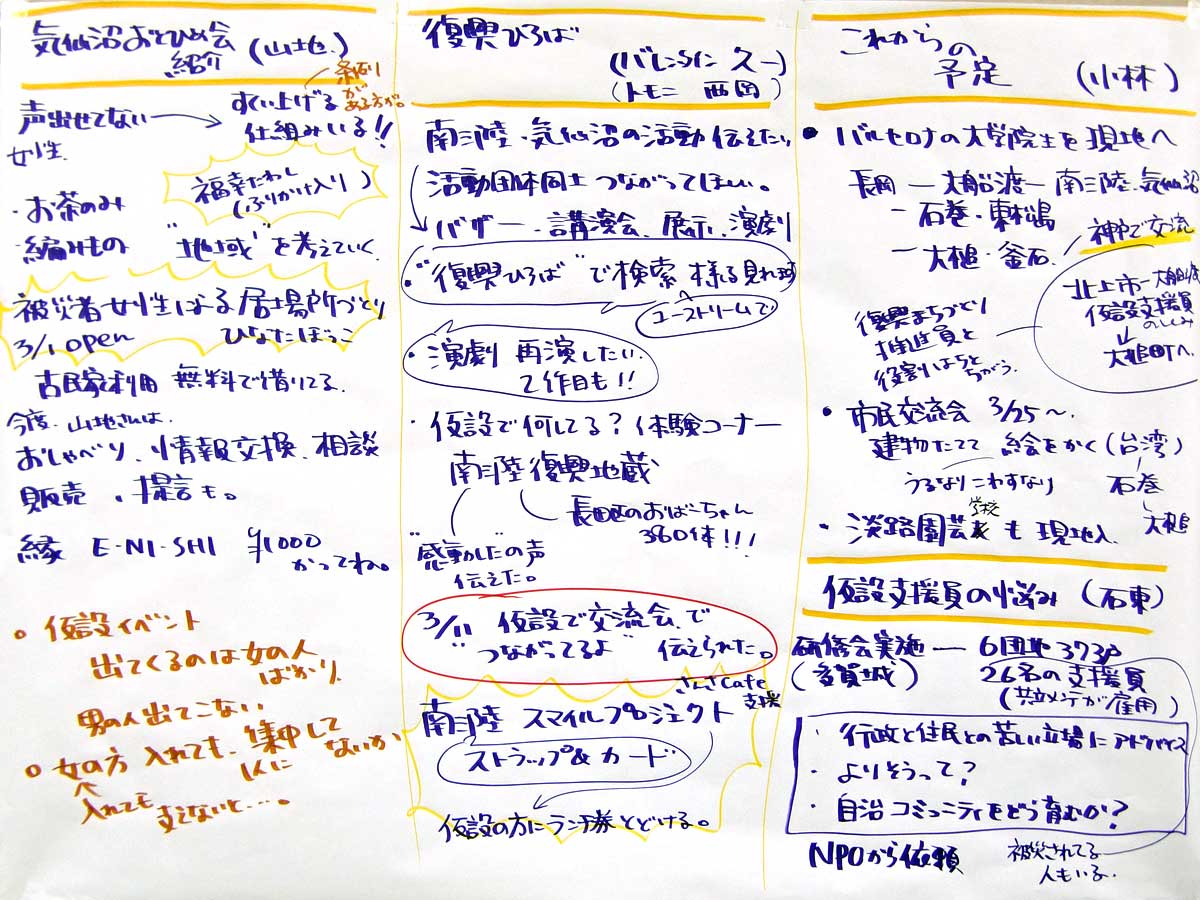 気仙沼おとひめ会
紹介 (山地)
声出せてない
女性
すい上げる
仕組みいる!!
条例
がある方が。
・お茶のみ
・編みもの
福幸だわし
(ふりかけ入り)
"地域"を考えていく
被災者女性による居場所づくり
3/1 open ひなたぼっこ
古民家利用 無料で借りてる。
今度、山地さんは、
おしゃべり、情報交換、相談
販売、提言も。
縁 E-NI-SHI ¥1000
かってね。
○ 仮設イベント
出てくるのは女の人
ばかり。
男の人出てこない
○ 女の方 入れても、集中して
1人に ないか
入れても
支えないと…。
復興ひろば
(バレンタイン 久一)
(トモニ 西岡)
南三陸・気仙沼の活動 伝えたい
活動団体同士 つながってほしい。
バザー・講演会、展示、演劇
"復興ひろば"で検索 様子見れます
ユーストリームで
・演劇 再演したい。
2作目も!!
・仮設で何してる?体験コーナー
南三陸復興地蔵
長田区のおばーちゃん
380体!!!
"感動した"の声
伝えた。
3/11 仮設で交流会で
"つながってるよ" 伝えられた。
さんさCafe
支援
南三陸 スマイルプロジェクト
ストラップ&カード
仮設の方にランチ券とどける。
これからの
予定 (小林)
● バルセロナの大学院生を現地へ
長岡 ー 大船渡 ー 南三陸・気仙沼
ー 石巻・東松島
ー 大槌・釜石
神戸で交流
北上市ー大船渡
仮設支援員
のしくみ
大槌町へ。
復興まちづくり
推進員と
役割はちと
ちがう。
● 市民交流会 3/25〜
建物たてて 絵をかく(台湾)
うるなりこわすなり 石巻
大槌
・淡路園芸学校も現地入
仮設支援員の悩み (石東)
研修会実施 ー 6団地373戸
(多賀城) 26名の支援員
(共立メンテが雇用)
・行政と住民との苦しい立場にアドバイス
・よりそって?
・自治コミュニティをどう育むか?
NPOから依頼
被災されてる
人もいる。